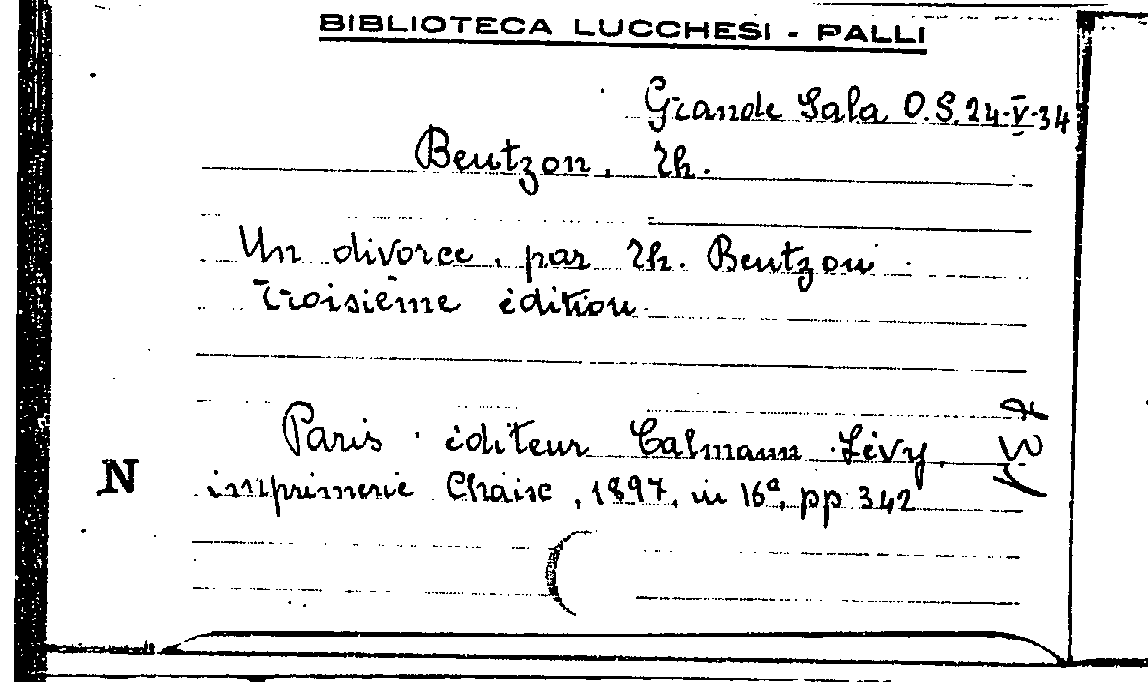 BIBLIOTECA LUCCHESI - PALLI
Grande Sala O.S. 24-V-34
Beutzon, Th.
Un divorce, par Th. Beutzon
Troisième édition
Paris éditeur Calmann Lévy,
N
imprimerie Chaix, 1897, in 16º, pp 342